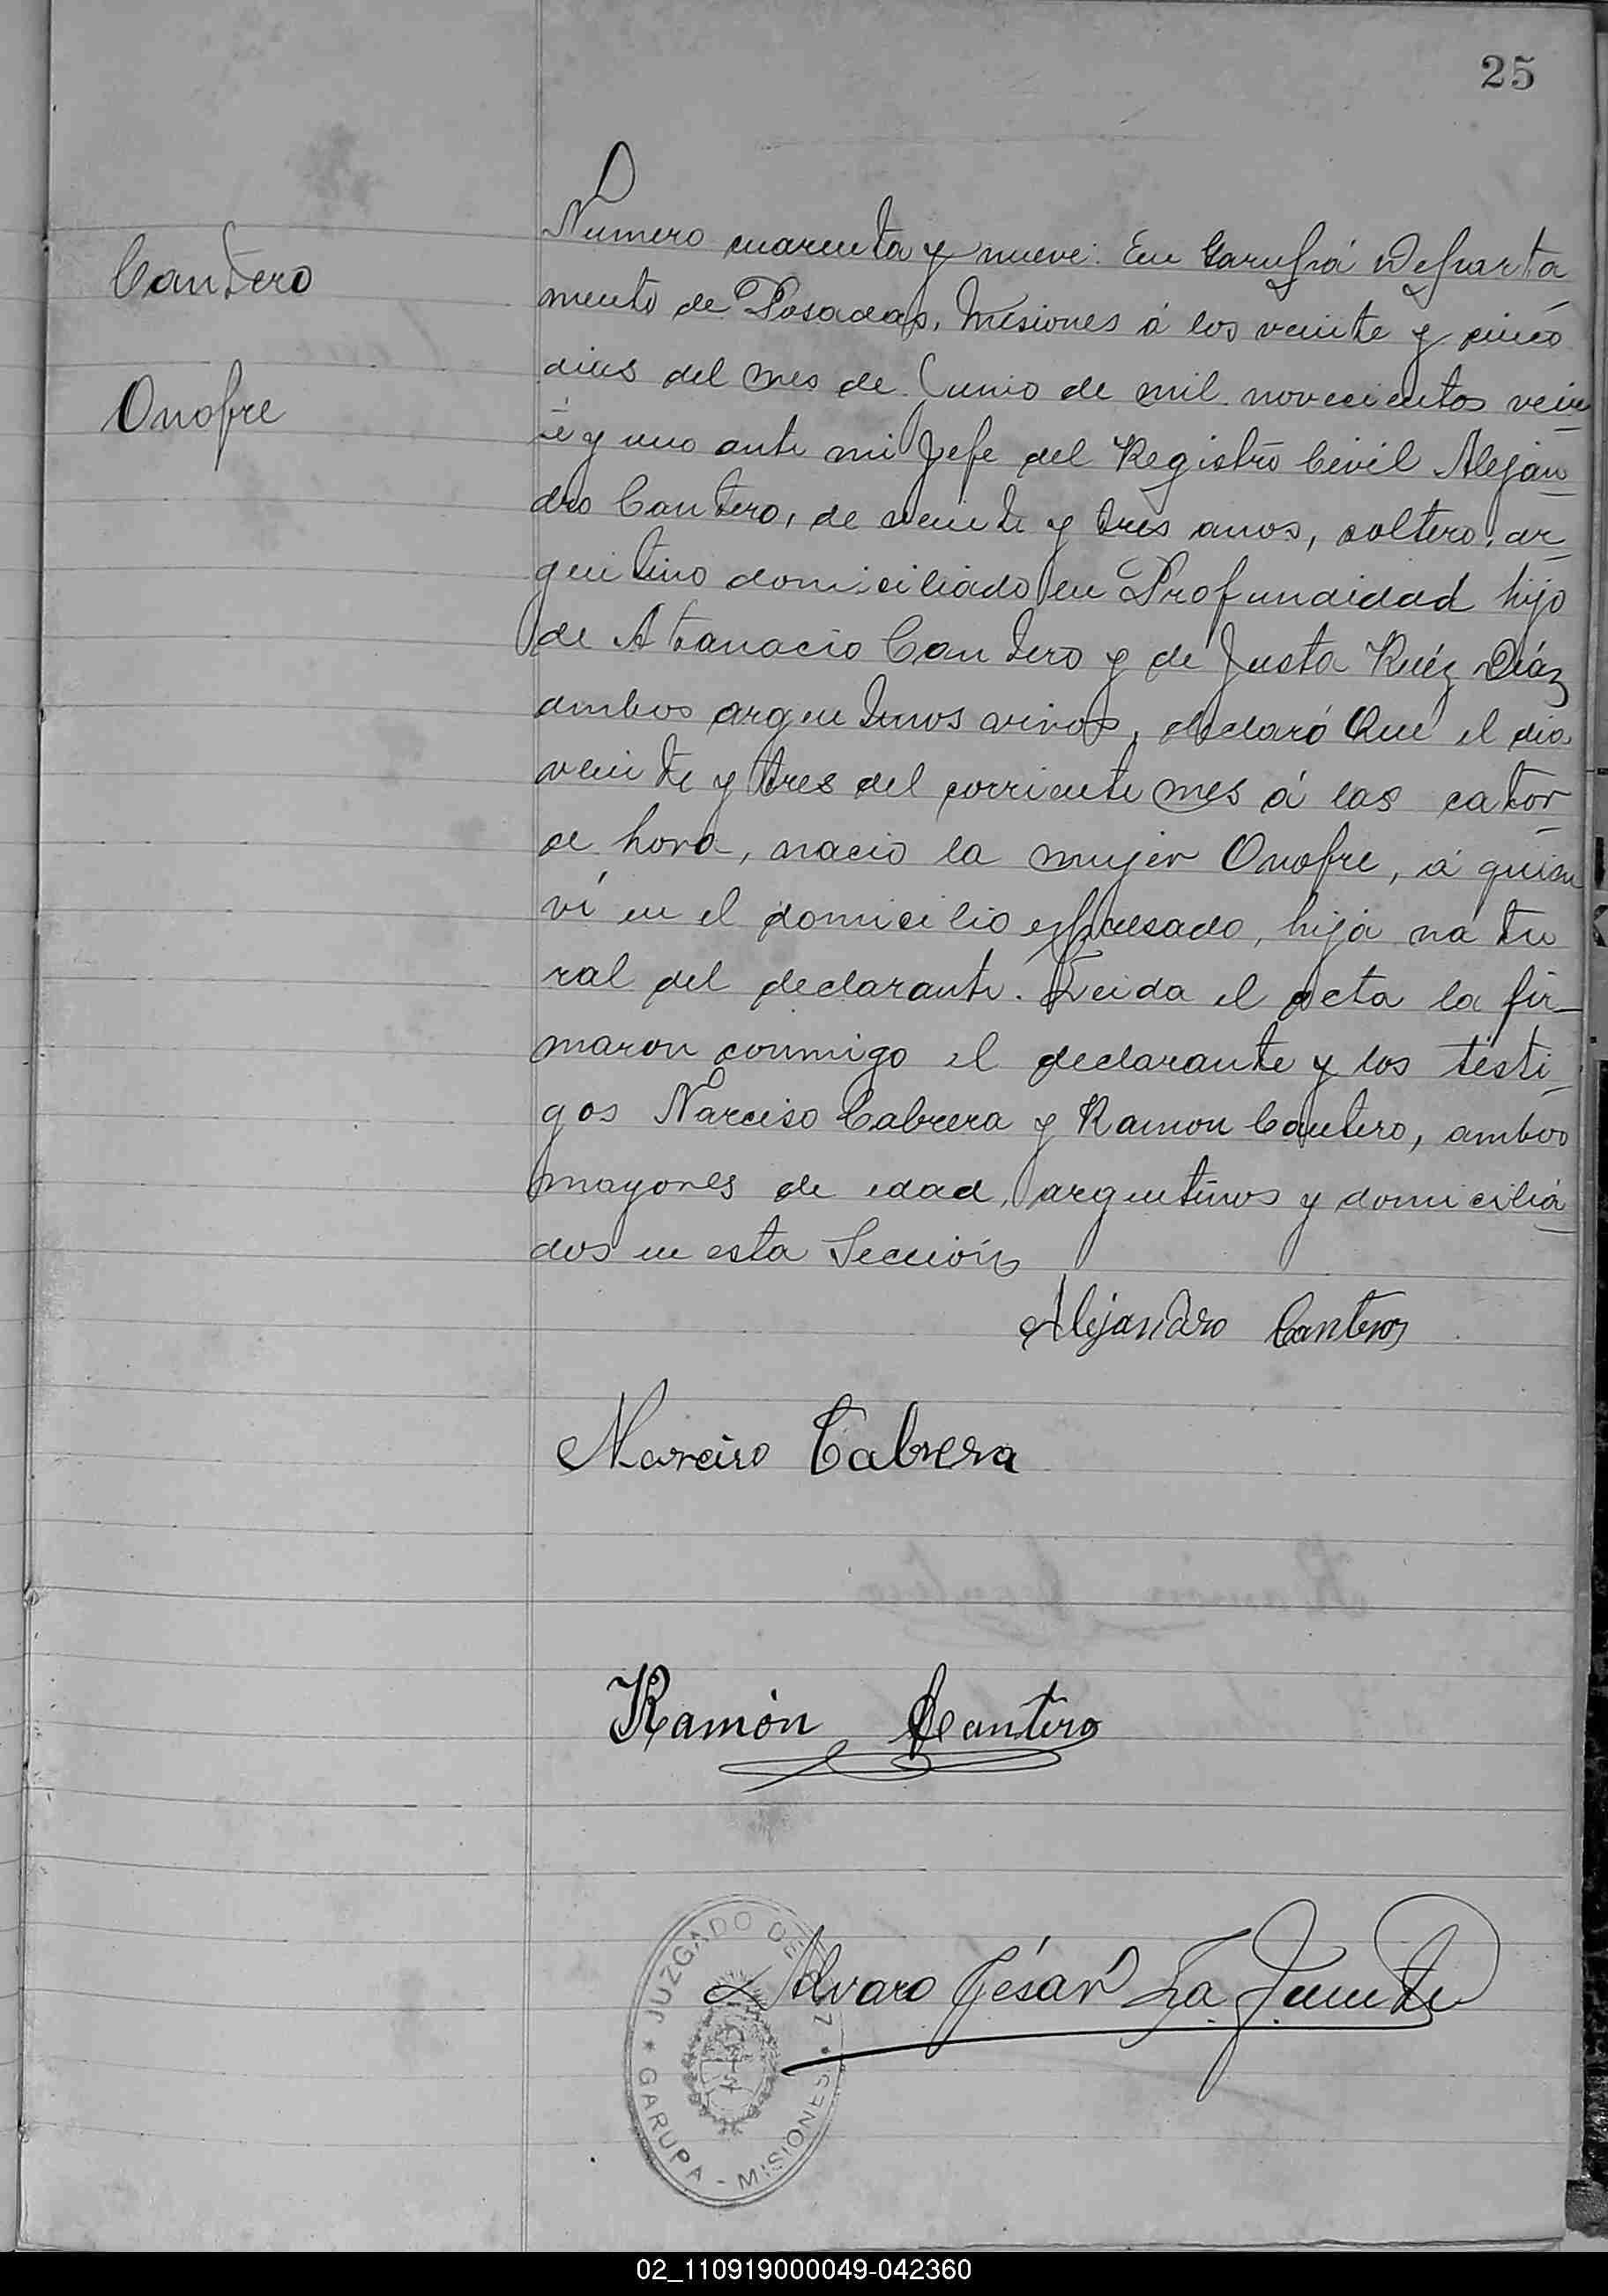 25
Cantero
Onofre
Numero cuarenta y nueve: En Garupá Departa
mento de Posadas, Misiones á los veinte y cinco
dias del mes de Junio de mil novecientos vein
te y uno ante mi Jefe del Registro Civil Alejan
dro Cantero, de veinte y tres anos, soltero, ar
gentino domiciliado en Profundidad hijo
de Atanacio Cantero y de Justa Ruéz Diáz
ambos argentinos vivos, declaró Que el dia
veinte y tres del corriente mes á las cator
ce hora, nacio la mujer Onofre, á quien
ví en el domicilio expresado, hija natu
ral del declarante. Leida el acta la fir
maron conmigo el declarante y los testi
gos Narciso Cabrera y Ramon Cantero, ambos
mayores de edad, argentinos y domicilia
dos en esta Sección
Alejandro Canteros
Narciso Cabrera
Ramón Cantero
Alvaro César La Fuente
JUZGADO DE PAZ
GARUPA - MISIONES
02_110919000049-042360